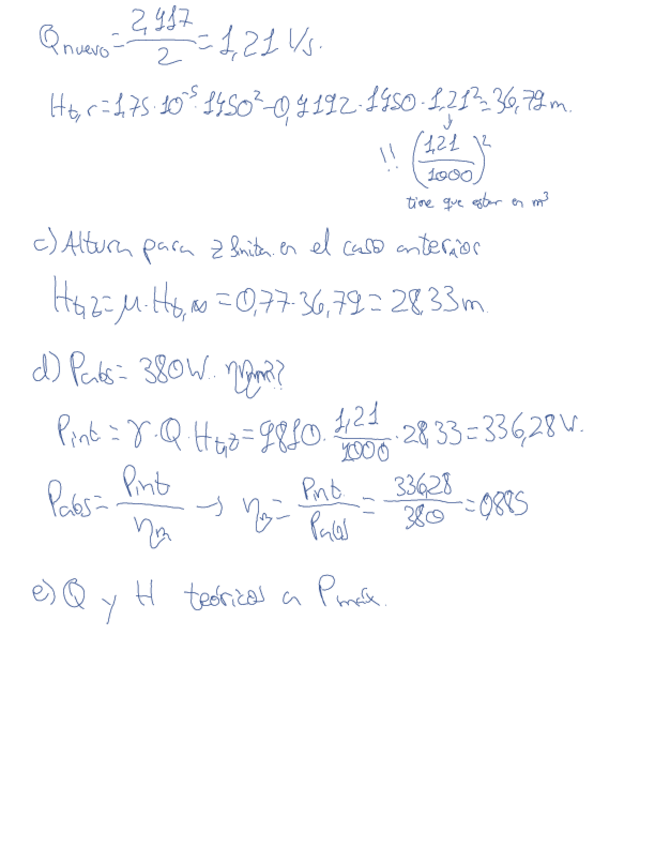 Qnuevo = 2,417/2 = 1,21 l/s.
Ht,r = 1,75·10^-5·1450² - 0,4192·1450·1,21² = 36,79 m.
↓
!! (1,21/1000)²
tiene que estar en m³
c) Altura para z finita en el caso anterior
Ht,z = μ·Ht,∞ = 0,77·36,79 = 28,33 m
d) Pabs = 380W.
Pint = γ·Q·Ht,z = 9810·1,21/1000·28,33 = 336,28 W.
Pabs = Pint/ηm → ηm = Pint/Pabs = 336,28/380 = 0,885
e) Q y H teóricos a Pmáx.